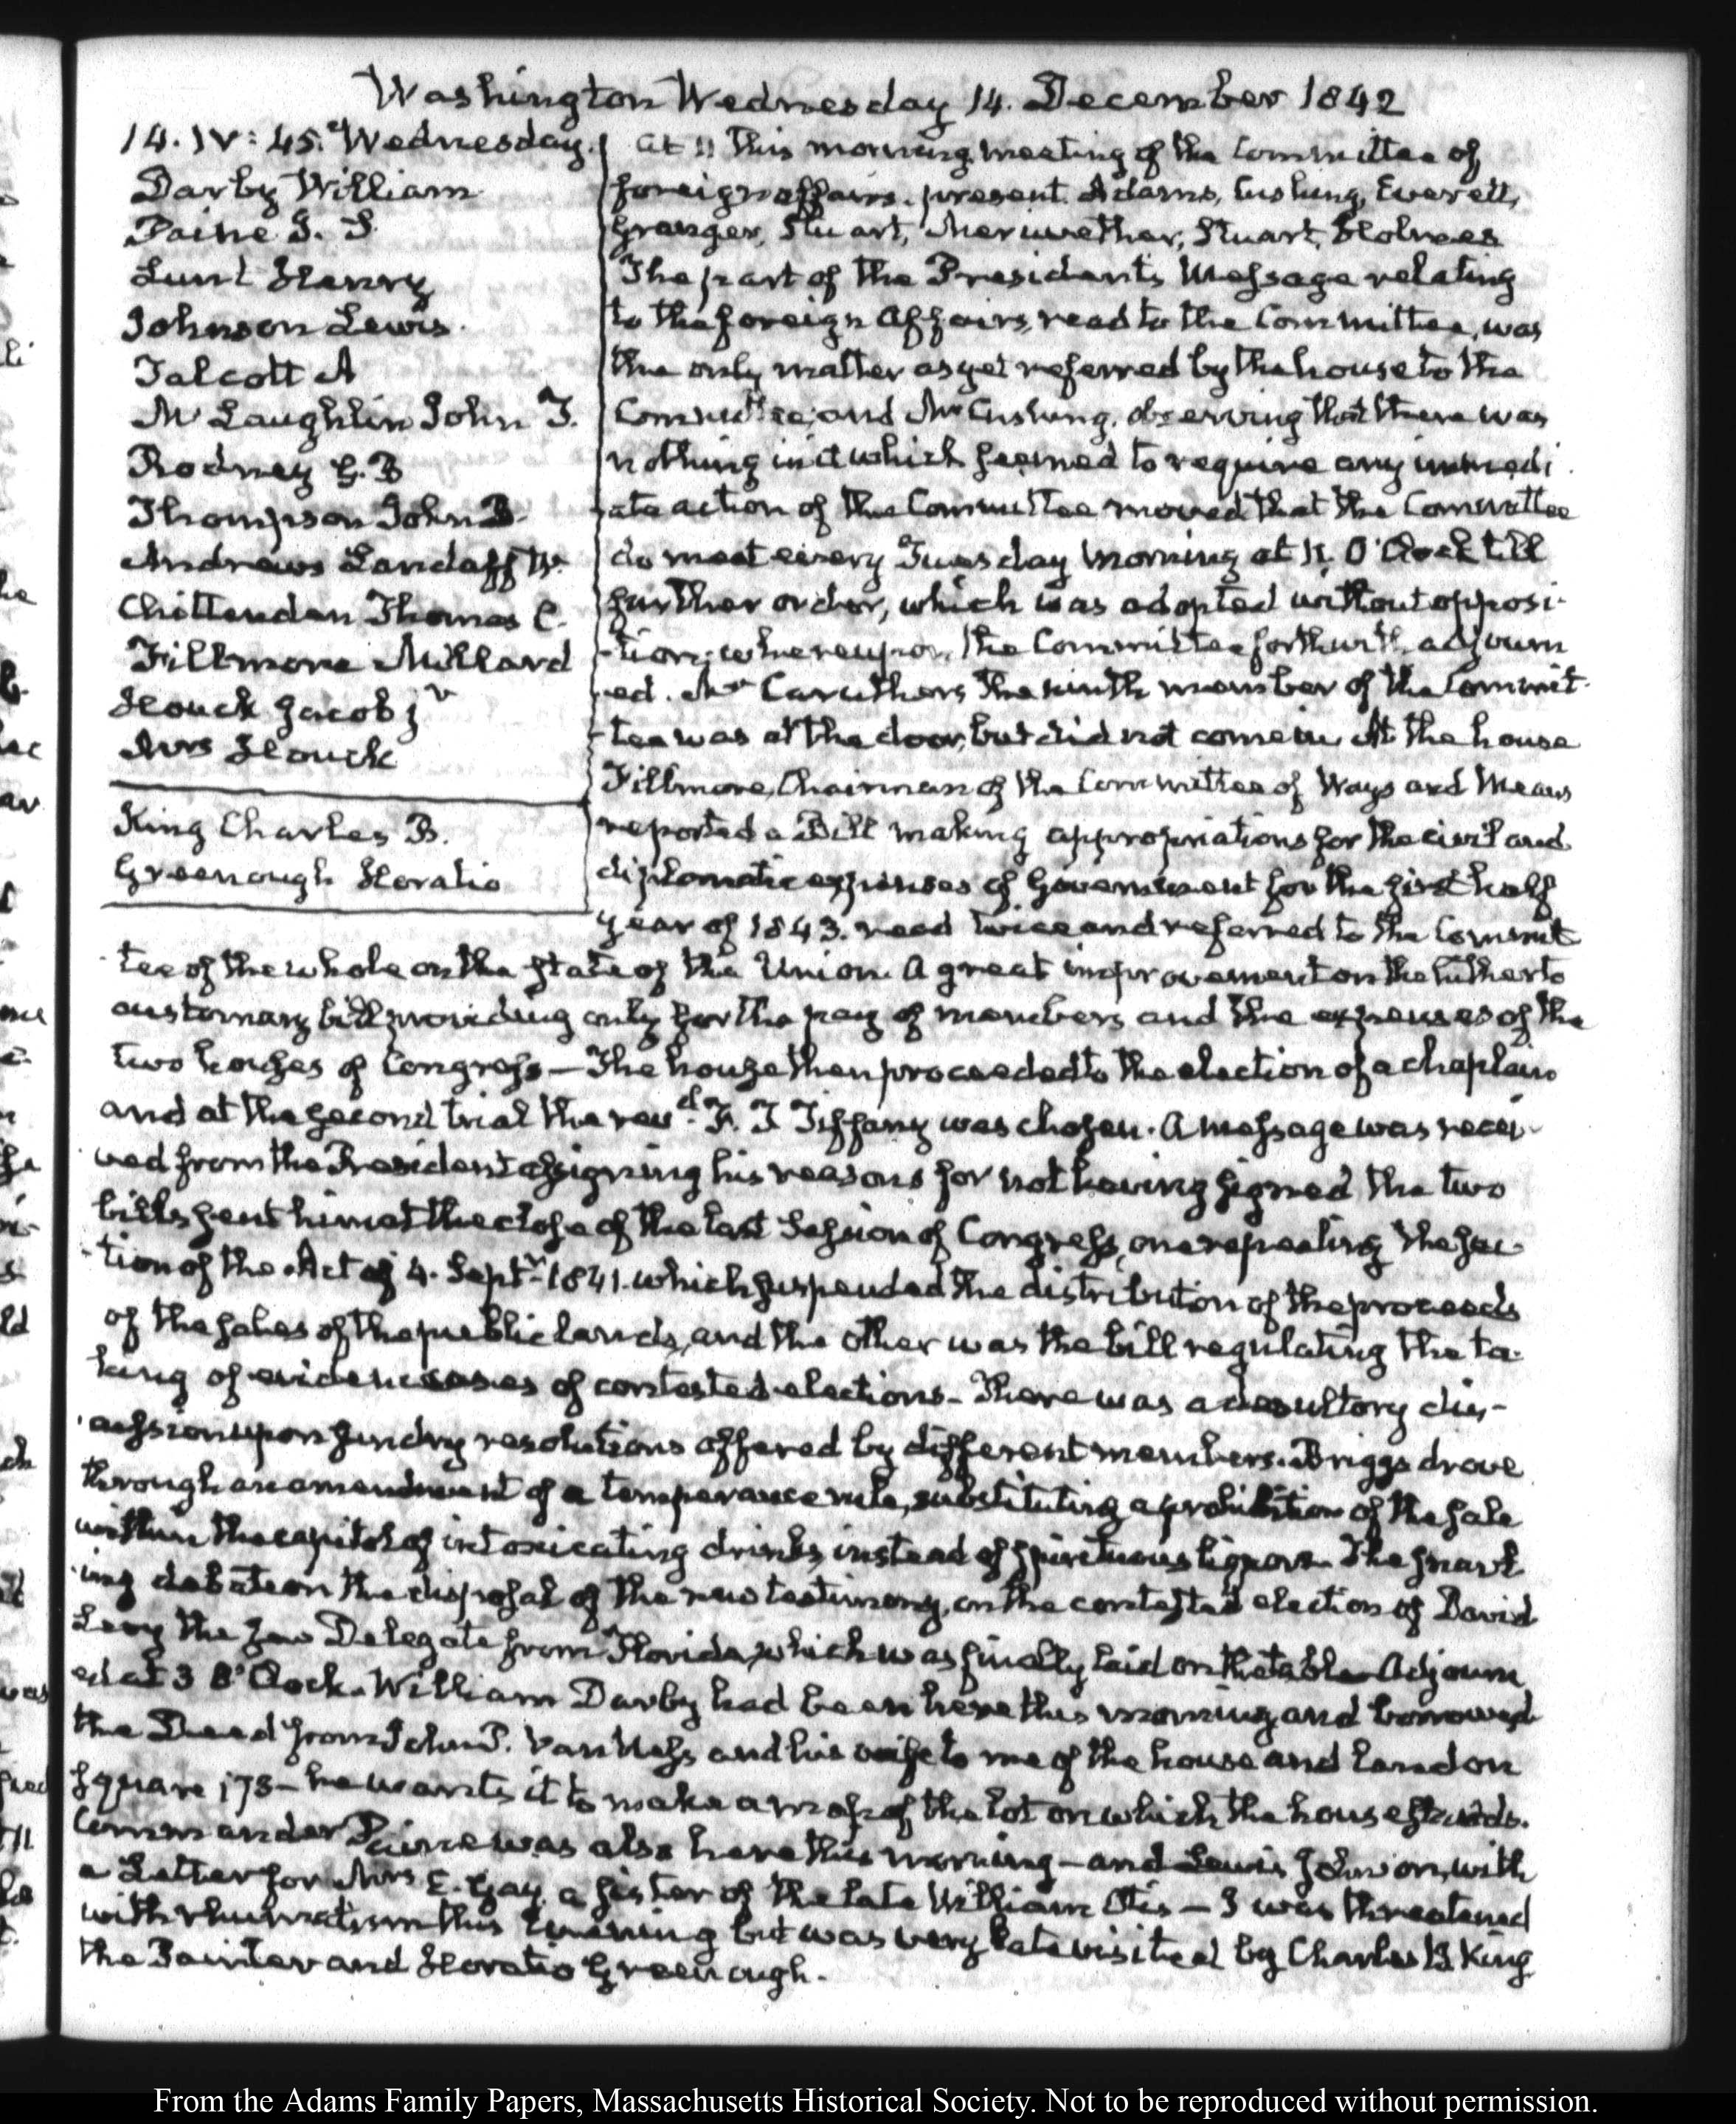 Washington Wednesday 14. December 1842
14. IV: 45. Wednesday.
Darby William
Paine T. S
Lunt Henry
Johnson Lewis.
Talcott A
McLaughlin John T.
Rodney G. B
Thompson John B.
Andrews Landaff W.
Chittenden Thomas C.
Fillmore Millard
Houck Jacob jr
Mrs Houck
King Charles B.
Greenough Horatio
At 11 this morning meeting of the Committee of
foreign affairs. present Adams, Cushing, Everett,
Granger, Stuart, Meriwether, Stuart, Holmes
The part of the Presidents Message relating
to the foreign Affairs, read to the Committee, was
the only matter as yet referred by the house to the
Committee; and Mr Cushing, observing that there was
nothing in it which seemed to require any immedi
ate action of the Committee moved that the Committee
do meet every Tuesday Morning at 11. O'Clock till
further order, which was adopted without opposi-
-tion; whereupon, the Committee forthwith adjourn
-ed. Mr Caruthers the ninth member of the Commit-
-tee was at the door, but did not come in. At the house
Fillmore, Chairman of the Committee of Ways and Means
reported a Bill making appropriations for the civil and
diplomatic expenses of Government for the first half
year of 1843. read twice and referred to the Commit
tee of the whole on the state of the Union. A great improvement on the hitherto
customary bill providing only for the pay of members and the expenses of the
two houses of Congress — The house then proceeded to the election of a chaplain
and at the second trial the revd. F. T Tiffany was chosen. A message was recei-
ved from the President assigning his reasons for not having signed the two
bills sent him at the close of the last Session of Congress, one repealing the sec-
-tion of the Act of 4. Septr. 1841. which suspended the distribution of the proceeds
of the sales of the public lands, and the other was the bill regulating the ta-
king of evidence in cases of contested elections - There was a desultory dis-
cussion upon sundry resolutions offered by different members. Briggs drove
through an amendment of a temperance rule, substituting a prohibition of the sale
within the capitol of intoxicating drinks, instead of spirituous liquors. The snarl-
ing debate on the disposal of the new testimony, on the contested election of David
Levy the Jew Delegate from Florida, which was finally laid on the table. Adjourn
ed at 3 O'Clock. William Darby had been here this morning and borrowed
the Deed from John P. Van Ness and his wife to me of the house and land on
square 178 — he wants it to make a map of the lot on which the house stands.
Commander Paine was also here this morning — and Lewis Johnson, with
a Letter for Mrs E. Gay, a sister of the late William Otis — I was threatened
with rhumatism this Evening but was very late visited by Charles B. King
the Painter and Horatio Greenough.
From the Adams Family Papers, Massachusetts Historical Society. Not to be reproduced without permission.